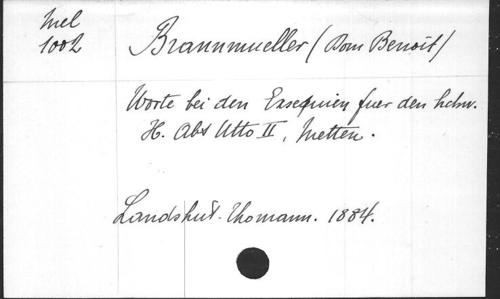 Mel
1002
Braunmueller (Dom Benoit)
Worte bei den Exsequien fuer den hchw.
H. Abt Utto II, Metten.
Landshut. Thomann. 1884.